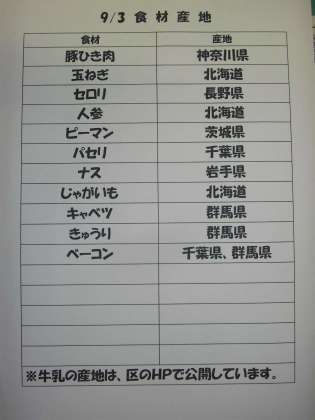 9/3 食材産地
食材 産地
豚ひき肉 神奈川県
玉ねぎ 北海道
セロリ 長野県
人参 北海道
ピーマン 茨城県
パセリ 千葉県
ナス 岩手県
じゃがいも 北海道
キャベツ 群馬県
きゅうり 群馬県
ベーコン 千葉県、群馬県
※牛乳の産地は、区のHPで公開しています。